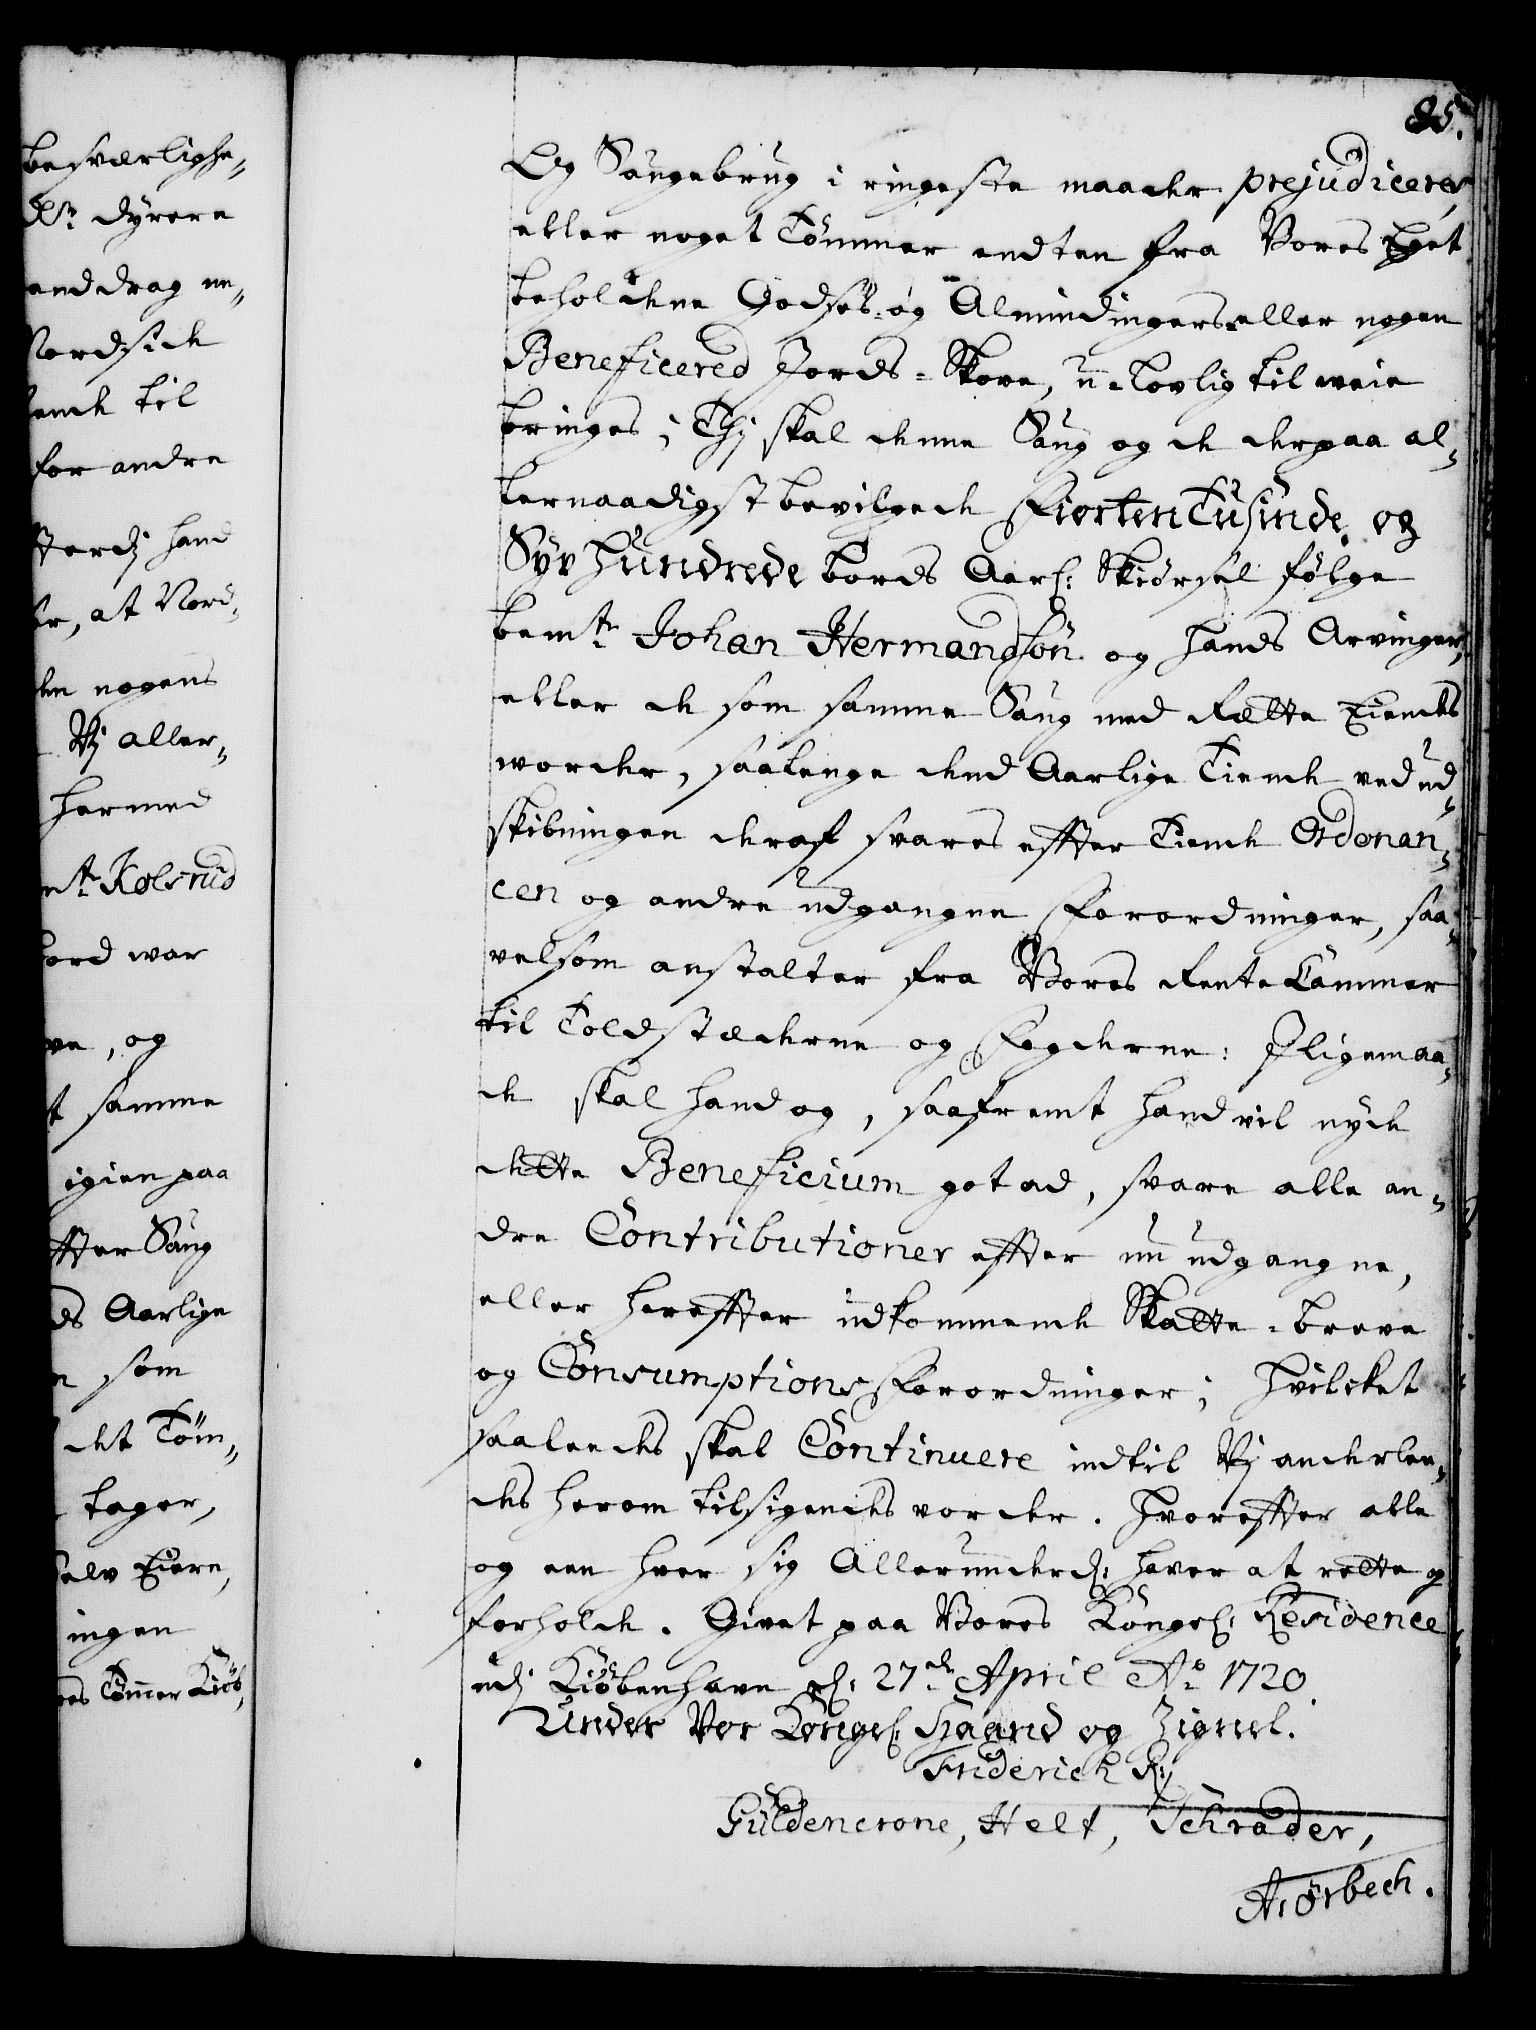 besværlighe„
dyrere
anddrag ne„
Nordside
ende til
for andre
hand
at Nord„
nogens
Vj aller„
hermed
mte Kølsrud
bord war
ve, og
t samme
igien paa
effter Saug
ds Aarlige
n som
det Töm„
tager,
selv Eiere,
ingen
85.
Og Saugebrug i ringeste maader prejudiceres
eller noget Tömmer endten fra Vores Eget
beholdene Godses- og Almindingers eller nogen
Beneficered Jords-Skove, u-lovlig til weie
bringes; Thj skal denne Saug og de derpaa al„
lernaadigst bevilgede Fiorten Tusinde og
Syv Hundrede bords Aarl: Skiørsel følge
bemte Johan Hermandsön og hands Arvinger,
eller de som samme Saug med Rætte Eiendes
worder, saalenge dend Aarlige Tiende ved ud„
skibningen deraf svares effter Tiende Ordonan„
cen og andre udgangne Forordninger, saa„
velsom anstalter fra Vores Rente Cammer
til Toldstæderne og Fogderne: Jligemaa„
de skal hand og, saafremt hand vil nyde
dette Beneficium got ad, svare alle an„
dre Contributioner effter nu udgangne,
eller hereffter udkommende Skatte-breve
og Consumptions Forordninger; Hvilcket
saaledes skal Continuere indtil Vj anderlee„
des herom tilsigendes vorder. Hvoreffter alle
og een hver sig Allerunderd: haver at rette og
forholde. Givet paa Vores Kongel: Residence
udj Kiøbenhavn d: 27de April Ao 1720
Under Vor Kongel: Haand og Zignel.
Friderich R:
Güldencrone, Helt, Schrader,